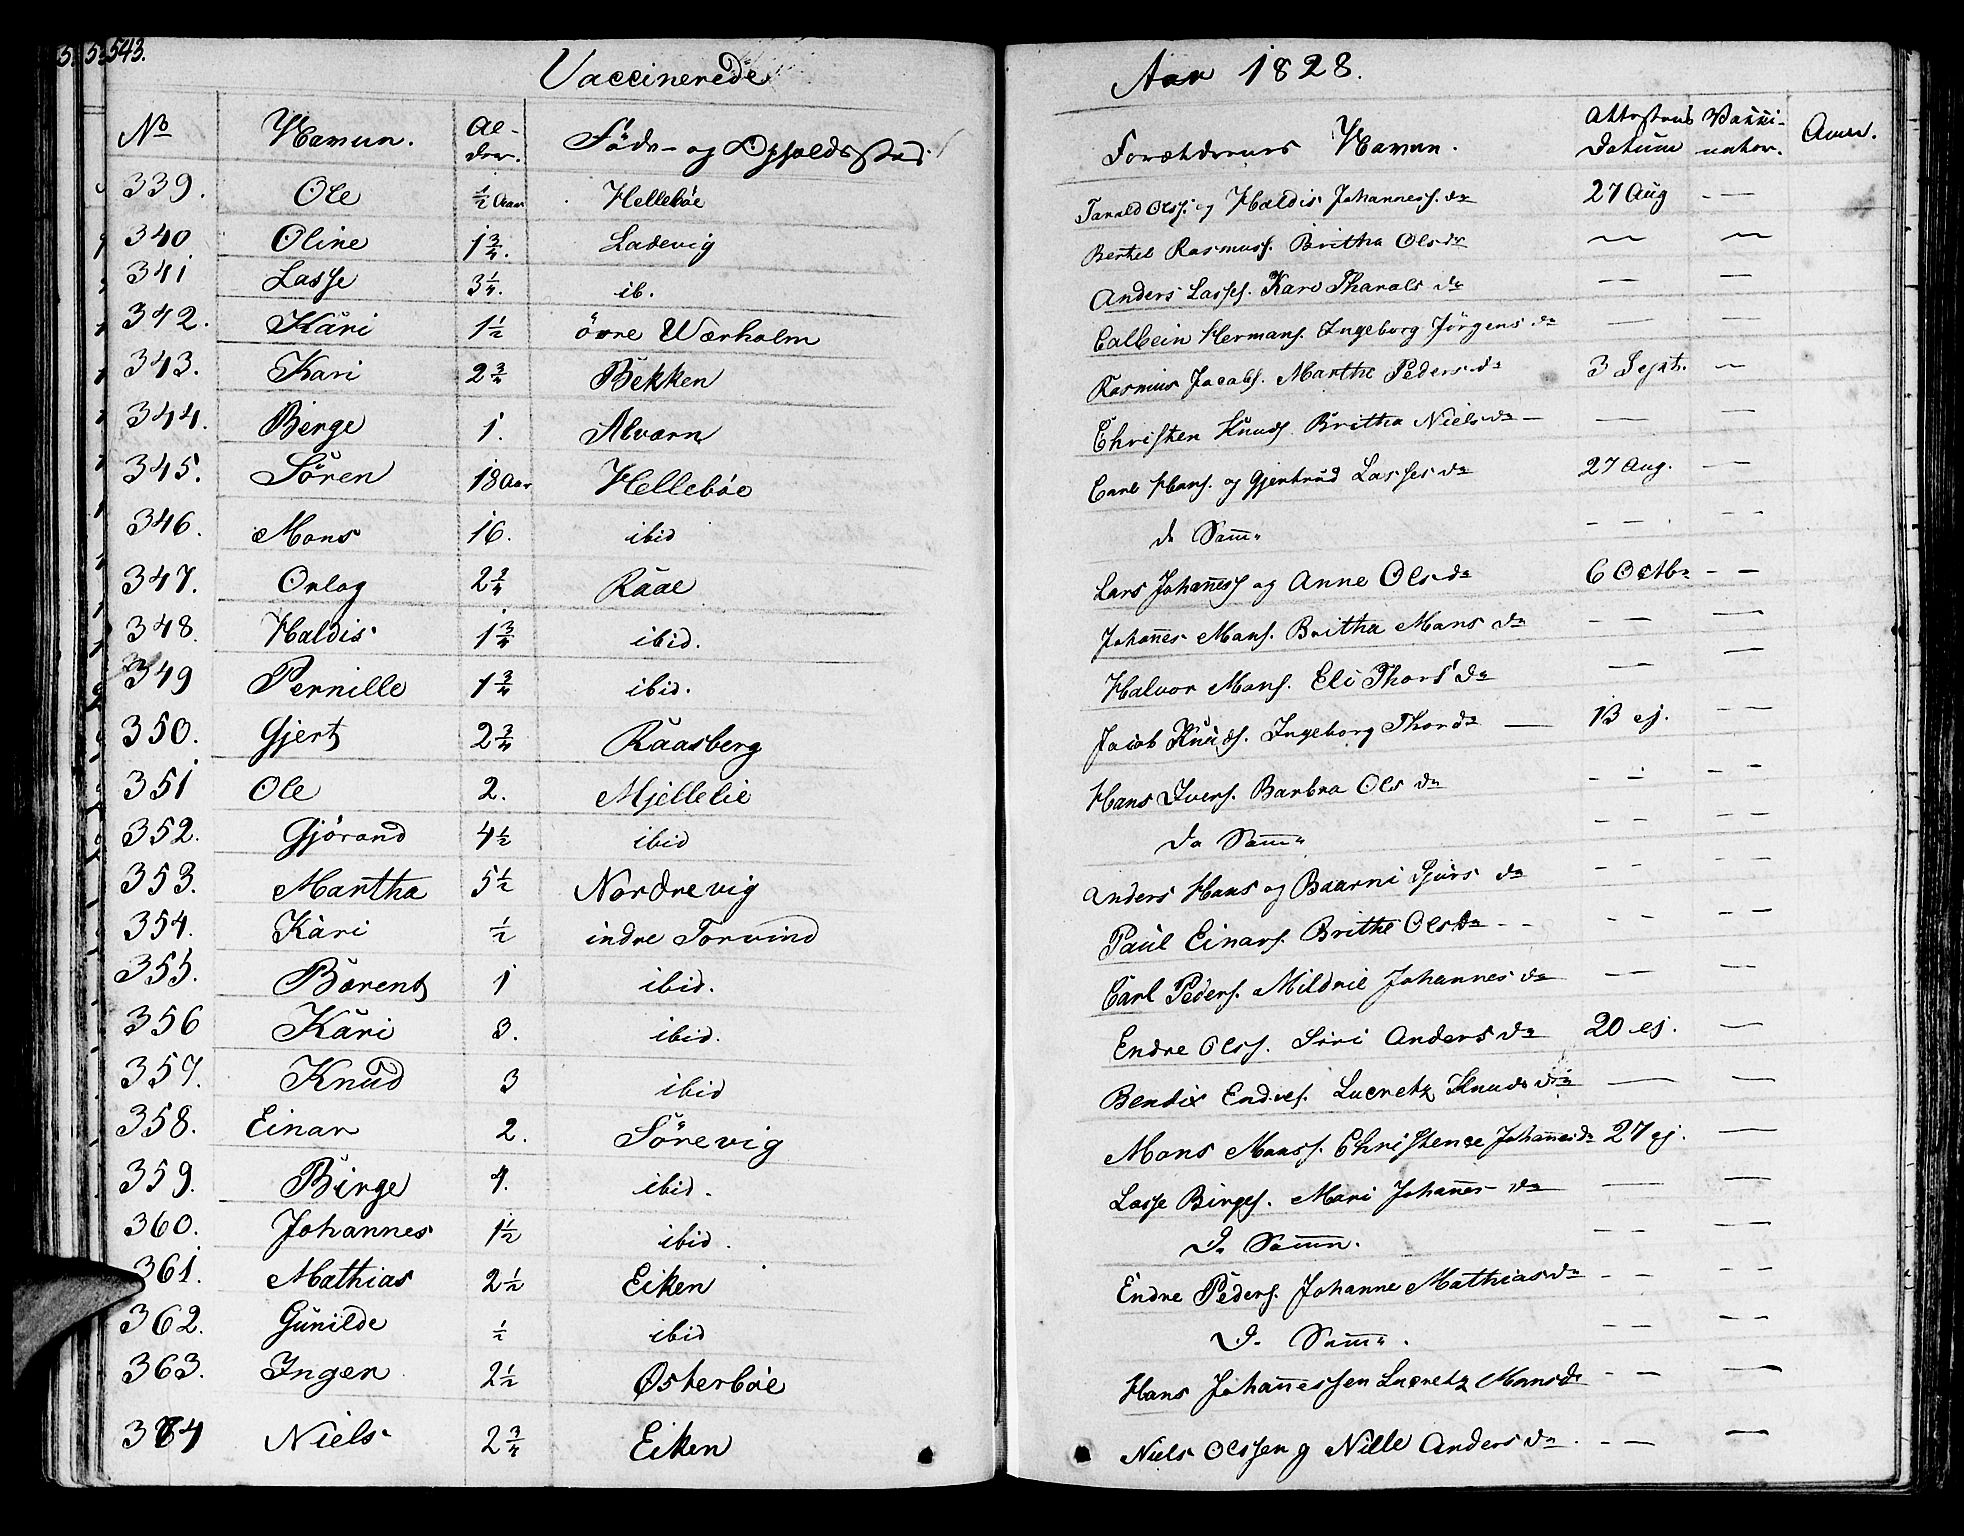 543.
Vaccinerede Aar 1828.
No Navn. Al- der. Føde- og Opholdssted. Forældrenes Navn. Attestens Datum Vakki- nator. Anm.
339. Ole ½ Aar Hellebøe Tarald Olss. og Haldis Johanness. da 27 Aug - —
340 Oline 1¾. Ladevig Bertel Rasmuss. Britha Olsda — —
341 Lasse 3¼. ib. Anders Lasses. Kari Tharals da — —
342. Kari 1½ övre Wærholm Hermans. Ingeborg Jörgens da — —
343. Kari 2¾ Bekken Rasmus Jacobs. Marthe Peders da 3 Sept. —
344. Birge 1. Alværn Christen Knuds. Britha Nielsda — — —
345. Sören 18 Aar Hellebøe Carl Hans. og Gjertrud Lasses da 27 Aug. —
346. Mons 16. ibid de Sam̄e - — - —
347. Orlog 2¾ Raae Lars Johan̄ess og Anne Olsda 6 Octbr - —
348. Haldis 1¾ ibid. Johan̄es Mons. Britha Mons da - — —
349 Pernille 1¾ ibid. Halvor Mons. Eli Thors da — —
350. Gjert 2¾ Raasberg Jacob Knuds. Ingeborg Thorda — 13 ej. - —
351 Ole 2. Mjellelie Hans Ivers. Barbra Ols da - - - —
352. Gjörand 4½ ibid de Sam̄e - - - —
353. Martha 5½ Nordrevig Anders Hans og Baarni Sjurs da - - - —
354. Kari ½ indre Torvind Paul Einars. Brithe Olsda - - - - - —
355. Berent 1 ibid. Carl Peders. Mildrie Johannes da — —
356 Kari 3. ibid. Endre Olss. Siri Anders da 20 ej. —
357. Knud 3 ibid Bendix Endres. Lucretz Knuds da — —
358. Einar 2. Sörevig Mons Monss. Christence Johannesda 27 ej. —
359. Birge 4. ibid. Lasse Birges. Mari Johan̄es da — —
360. Johannes 1½ ibid. D. Samm. - — - —
361. Mathias 2½ Eiken Endre Peders. Johanne Mathiasda - — - —
362. Gunilde ½ ibid D. Sam̄e. - — - —
363. Inger 2½ Østerbøe Hans Johan̄essen Lucretz Monsda - — —
364 Niels 2¾ Eiken Niels Olssen og Nille Anders da. - — —